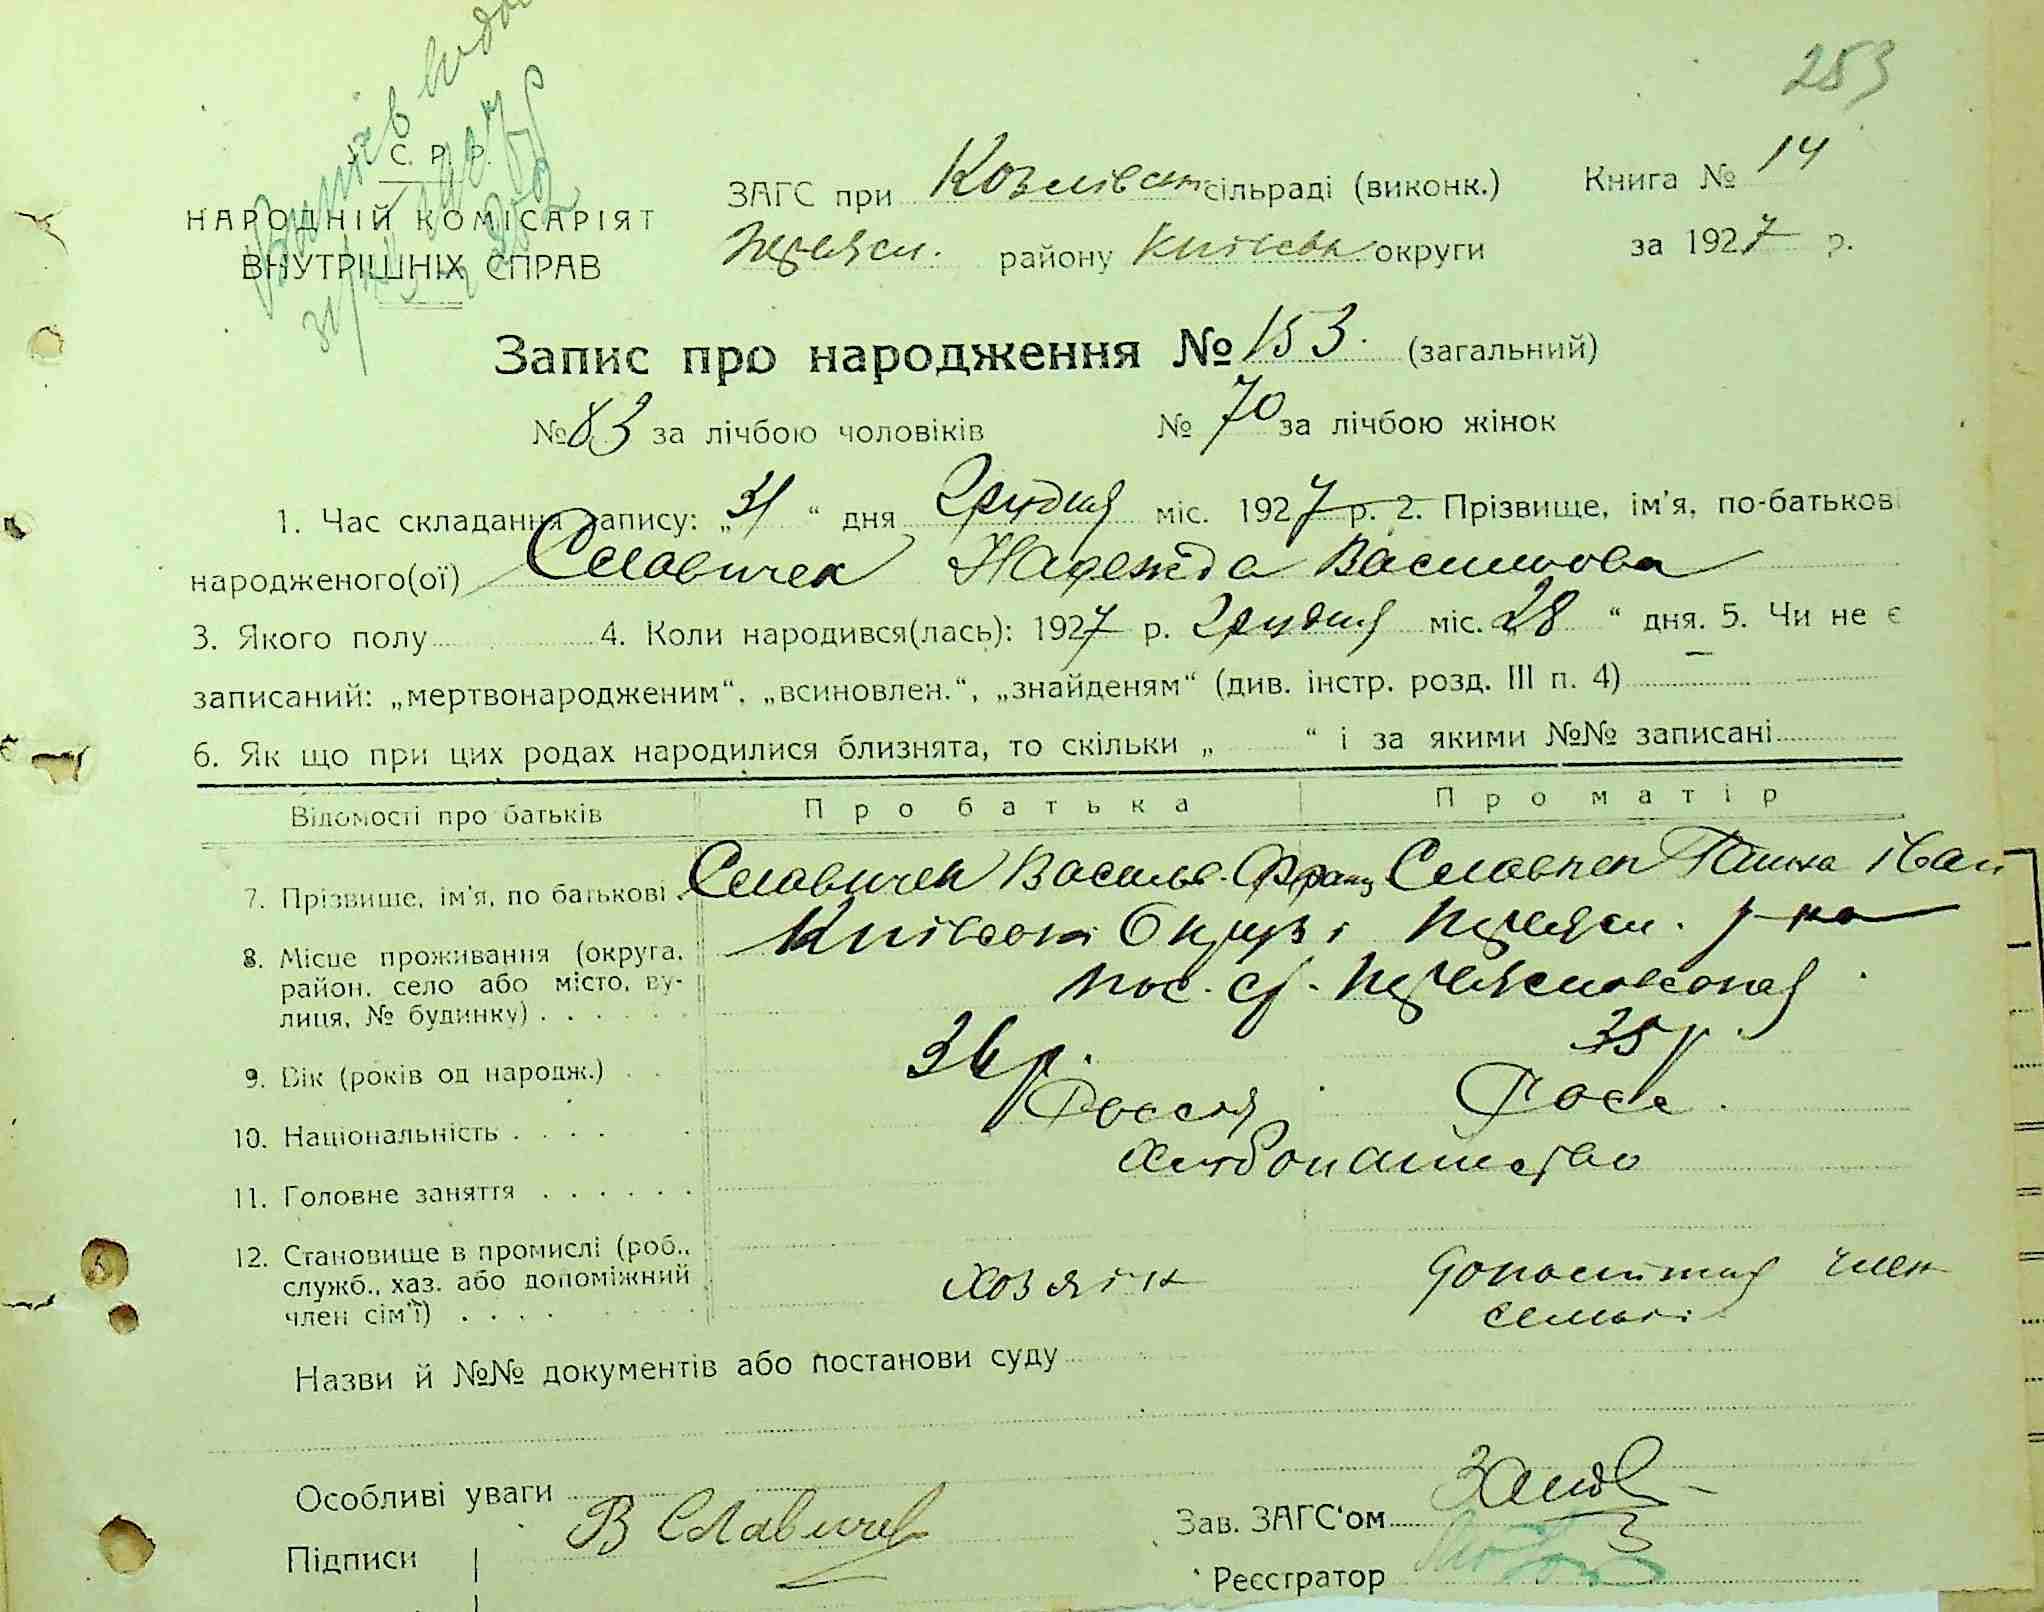 253
С. Р. Р.
НАРОДНІЙ КОМІСАРІЯТ
ВНУТРІШНІХ СПРАВ
ЗАГС при Козлівск сільраді (виконк.) Книга № 14
району Київськ округи за 1927 р.
Запис про народження № 153. (загальний)
№ 83 за лічбою чоловіків № 70 за лічбою жінок
1. Час складання запису: „31“ дня Грудня міс. 1927 р. 2. Прізвище, ім'я, по-батькові
народженого(ої) Славичек Надежда Василіова
3. Якого полу 4. Коли народився(лась): 1927 р. Грудня міс. „28“ дня. 5. Чи не є
записаний: „мертвонародженим“, „всиновлен.“, „знайденям“ (див. інстр. розд. III п. 4) —
6. Як що при цих родах народилися близнята, то скільки „ “ і за якими №№ записані
Відомості про батьків Про батька Про матір
7. Прізвище, ім'я, по батькові Славичек Василь Франц Славичек Ганна Іван
8. Місце проживання (округа, район, село або місто, вулиця, № будинку) Київськ Округі р-на
9. Вік (років од народж.) 36 р. 35 р.
10. Національність Россія Росс.
11. Головне заняття Хлібопашество
12. Становище в промислі (роб., служб., хаз. або допоміжний член сім'ї) хозяїн допоміжний член семьі
Назви й №№ документів або постанови суду
Особливі уваги
Підписи В Славичек
Зав. ЗАГС'ом
Реєстратор